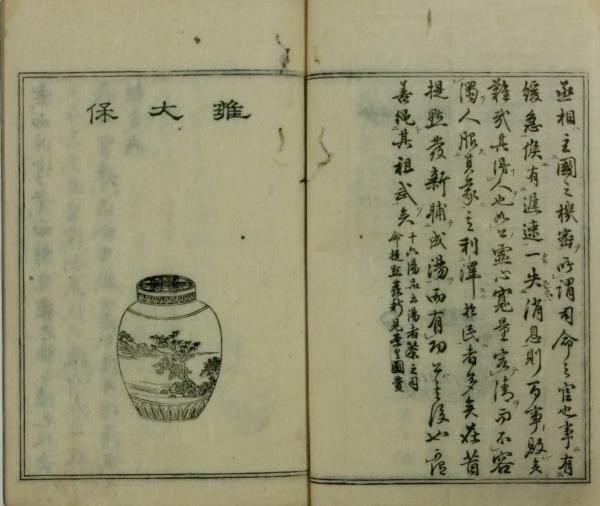 丞相主國之機密所謂司命之官也事有
緩急候有遲速一失消息則百事敗矣
難哉其湯人也如公靈心寬量容清而不容
濁人服其豪之利澤於民者多矣在昔
提點發新補成湯而有功公之後也宜
善繩其祖武矣
十六湯品云湯者茶之司
命提點發新見茶具圖賛
雅大保